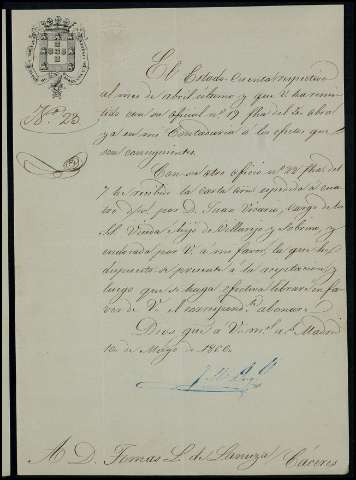 Nº 23.
El Estado Cuenta respectivo
al mes de abril último y que V. ha remi-
tido con su oficio nº 19 fha del 3 obra
ya en mi Contaduria a los efectos que
son consiguientes.
Con su otro oficio nº 22 fha del
7 he recibido la carta orn espedida a cua-
tro d/v. por D. Juan Vivario, cargo de los
SS. Viuda e hijo de Villarejo y Sobrino, y
endosada por V. a mi favor, la que he
dispuesto se presente a la aceptacion, y
luego que se haga efectiva librare en fa-
vor de V. el correspond.te abonaré.
Dios gue a V. ms. as. Madrid
10 de Mayo de 1860.
A D. Tomas L. de Sanuza Caceres